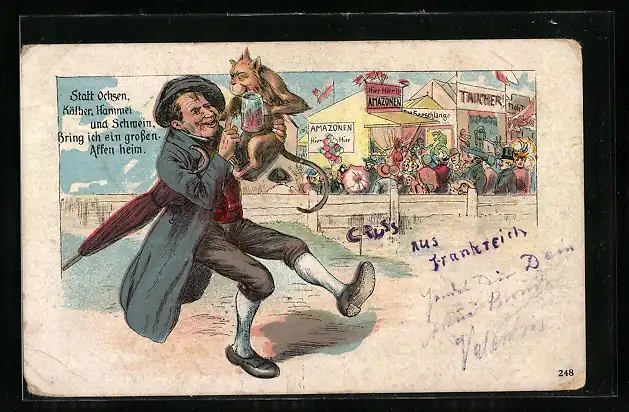 Statt Ochsen,
Kälber, Hammel
und Schwein,
Bring ich ein großen
Affen heim.
Hier Hier!!
AMAZONEN
TAUCHER
Seeschlange
AMAZONEN
Hier Hier
Gruss
aus
Frankreich
sendet Dir Dein
Valentin
248